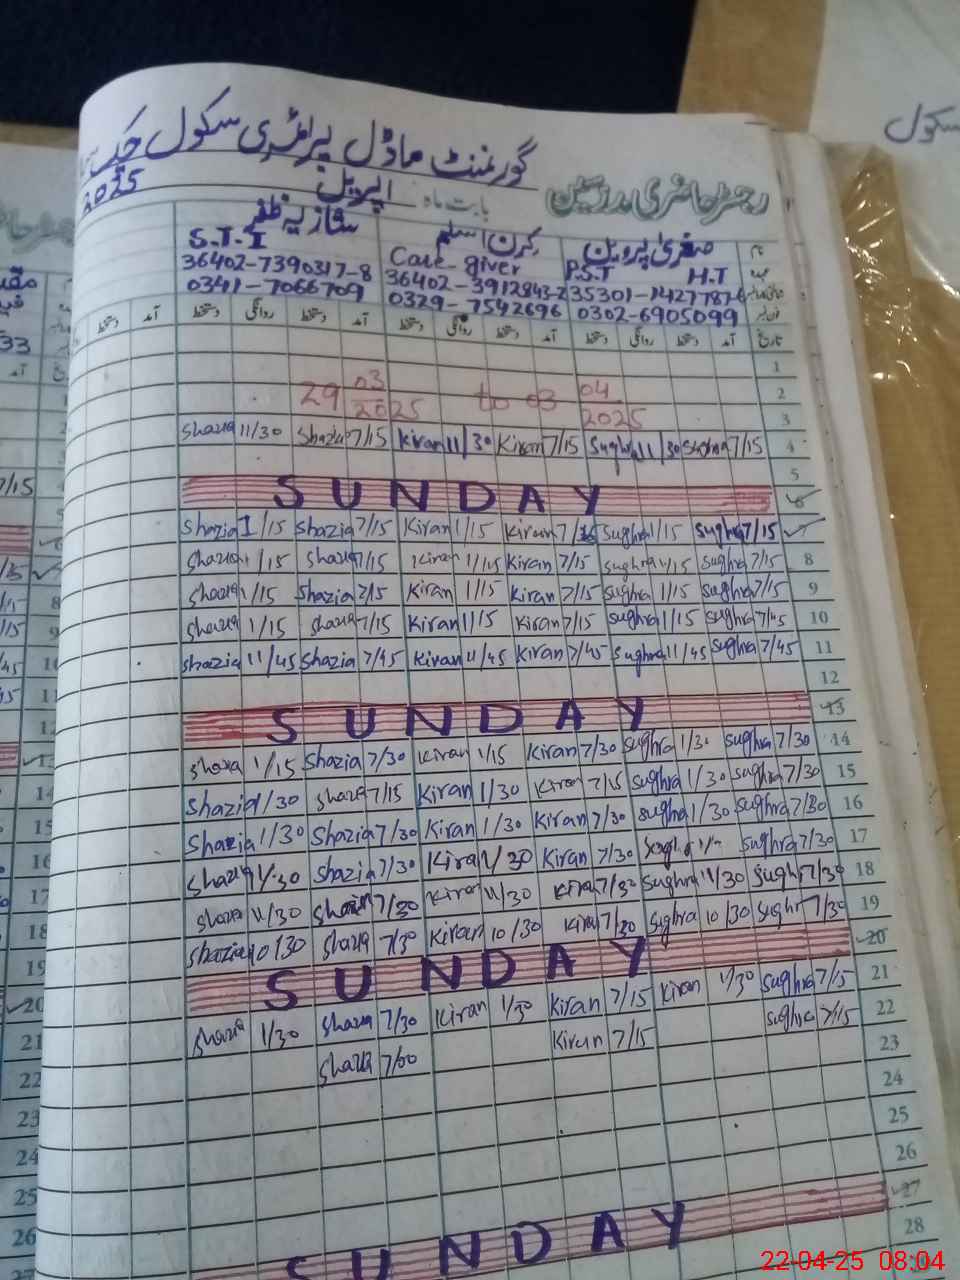 گورنمنٹ ماڈل پرائمری سکول چک
2025
رجسٹر حاضری مدرسین
بابت ماہ اپریل
نام صغریٰ پروین کرن اسلم شازیہ ظفر
P.S.T H.T Care-giver S.T.I
35301-1427787-6 36402-3912843-2 36402-7390317-8
0302-6905099 0329-7542696 0341-7066709
تاریخ آمد دستخط روانگی دستخط آمد دستخط روانگی دستخط آمد دستخط روانگی دستخط آمد دستخط
1
29 03 2025 to 03 04 2025 2
3
Shazia 11/30 Shazia 7/15 Kiran 11/30 Kiran 7/15 Sughra 11/30 Sughra 7/15 4
5
SUNDAY 6
Shazia 1/15 Shazia 7/15 Kiran 1/15 Kiran 7/15 Sughra 1/15 Sughra 7/15 7
Shazia 1/15 Shazia 7/15 Kiran 1/15 Kiran 7/15 Sughra 1/15 Sughra 7/15 8
Shazia 1/15 Shazia 7/15 Kiran 1/15 Kiran 7/15 Sughra 1/15 Sughra 7/15 9
Shazia 1/15 Shazia 7/15 Kiran 1/15 Kiran 7/15 Sughra 1/15 Sughra 7/45 10
Shazia 11/45 Shazia 7/45 Kiran 11/45 Kiran 7/45 Sughra 11/45 Sughra 7/45 11
12
SUNDAY 13
Shazia 1/15 Shazia 7/30 Kiran 1/15 Kiran 7/30 Sughra 1/30 Sughra 7/30 14
Shazia 1/30 Shazia 7/15 Kiran 1/30 Kiran 7/15 Sughra 1/30 Sughra 7/30 15
Shazia 1/30 Shazia 7/30 Kiran 1/30 Kiran 7/30 Sughra 1/30 Sughra 7/30 16
Shazia 1/30 Shazia 7/30 Kiran 1/30 Kiran 7/30 Sughra Sughra 7/30 17
Shazia 11/30 Shazia 7/30 Kiran 11/30 Kiran 7/30 Sughra 11/30 Sughra 7/30 18
Shazia 10/30 Shazia 7/30 Kiran 10/30 Kiran 7/30 Sughra 10/30 Sughra 7/30 19
SUNDAY 20
Shazia 1/30 Shazia 7/30 Kiran 1/30 Kiran 7/15 Kiran 1/30 Sughra 7/15 21
Shazia 7/00 Kiran 7/15 Sughra 7/15 22
23
24
25
26
SUNDAY 27
28
22-04-25 08:04